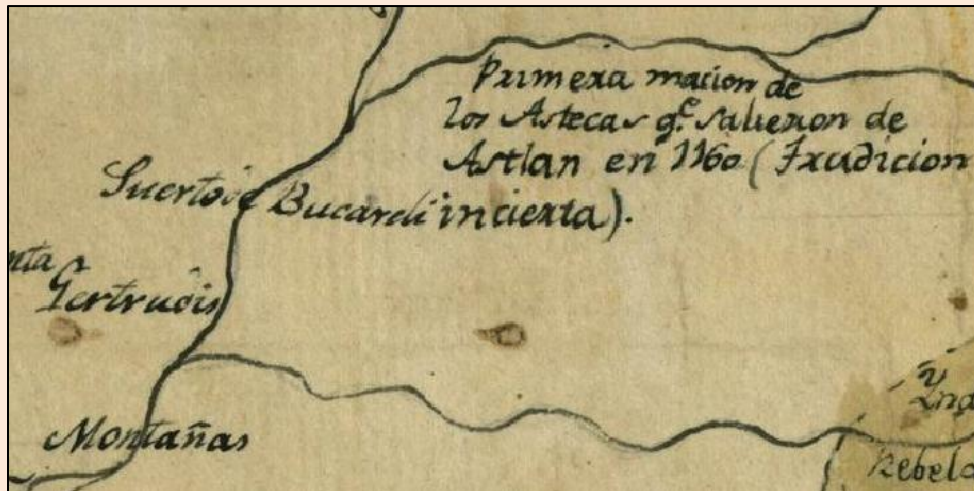 Primera macion de
los Astecas q.e salieron de
Astlan en 1160 (Trudicion
incierta).
Puerto de Bucardi
nta
Gertrudis
Montañas
Yndi
Rebeld